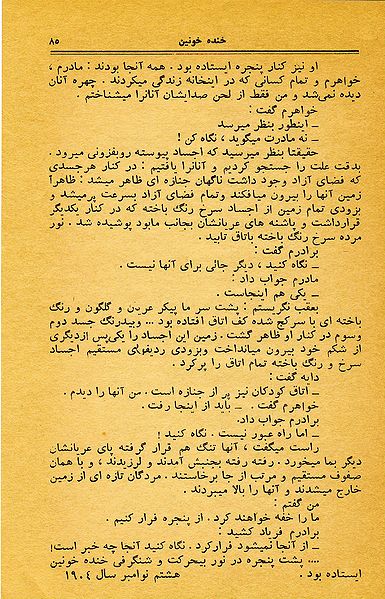 خنده خونین ۸۵
او نیز کنار پنجره ایستاده بود . همه آنجا بودند : مادرم ،
خواهرم و تمام کسانی که در اینخانه زندگی میکردند . چهره آنان
دیده نمی‌شد و من فقط از لحن صدایشان آنانرا میشناختم .
خواهرم گفت :
ــ اینطور بنظر میرسد
ــ نه مادرت میگوید ، نگاه کن !
حقیقتا بنظر میرسید که اجساد پیوسته روبفزونی میرود .
بدقت علت را جستجو کردیم و آنانرا یافتیم : در کنار هرجسدی
که فضای آزاد وجود داشت ناگهان جنازه ای ظاهر میشد : ظاهرا
زمین آنها را بیرون میافکند وتمام فضای آزاد بسرعت پرمیشد و
بزودی تمام زمین از اجساد سرخ رنگ باخته که در کنار یکدیگر
قرارداشت و پاشنه های عریانشان بجانب مابود پوشیده شد . نور
مرده سرخ رنگ باخته باتاق تابید .
برادرم گفت :
ــ نگاه کنید ، دیگر جائی برای آنها نیست .
مادرم جواب داد :
ــ یکی هم اینجاست .
بعقب نگریستم : پشت سر ما پیکر عریان و گلگون و رنگ
باخته ای با سرکج شده کف اتاق افتاده بود ... وبیدرنگ جسد دوم
وسوم در کنار او ظاهر گشت . زمین این اجساد را یکی‌پس ازدیگری
از شکم خود بیرون میانداخت وبزودی ردیفهای مستقیم اجساد
سرخ و رنگ باخته تمام اتاق را پرکرد .
دایه گفت :
ــ اتاق کودکان نیز پر از جنازه است . من آنها را دیدم .
خواهرم گفت . ــ باید از اینجا رفت .
برادرم جواب داد.
ــ اما راه عبور نیست . نگاه کنید !
راست میگفت ، آنها تنگ هم قرار گرفته پای عریانشان
دیگر بما میخورد . رفته رفته بجنبش آمدند و لرزیدند ، و با همان
صفوف مستقیم و مرتب از جا برخاستند . مردگان تازه ای از زمین
خارج میشدند و آنها را بالا میبردند .
من گفتم :
ما را خفه خواهند کرد . از پنجره فرار کنیم .
برادرم فریاد کشید :
ــ از آنجا نمیشود فرارکرد . نگاه کنید آنجا چه خبر است!
.... پشت پنجره در نور بیحرکت و شنگرفی خنده خونین
ایستاده بود . هشتم نوامبر سال ۱۹۰۴